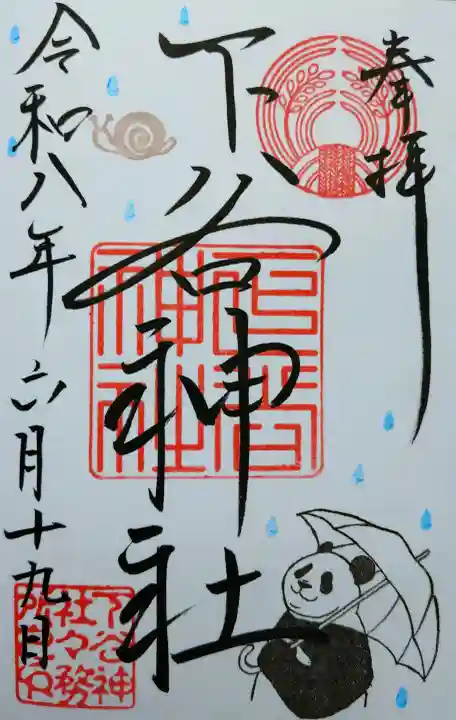 奉拝
下谷神社
令和八年六月十九日
下谷神
社々務
所之印